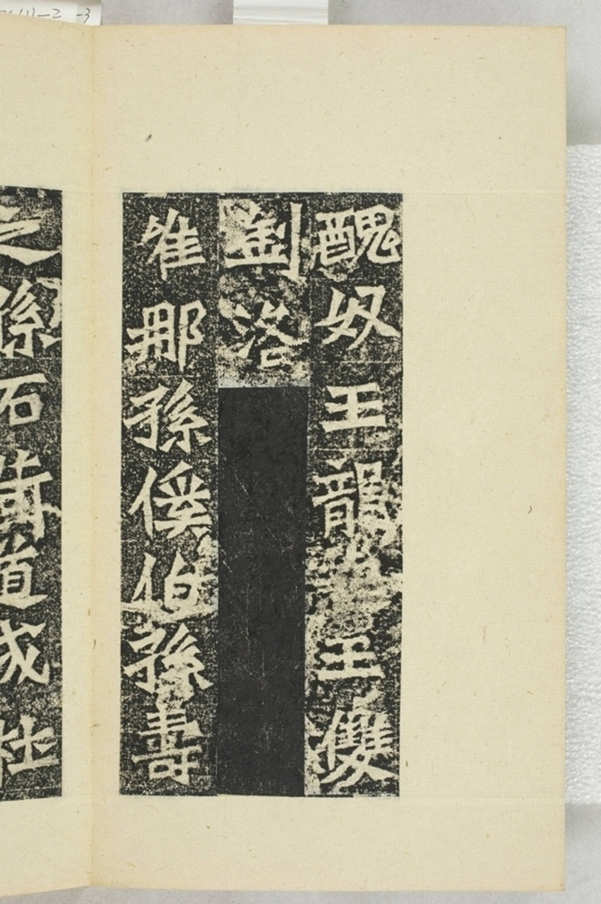 醜奴王龍□王雙
劉洛
唯那孫傒伯孫壽
之孫石荷道成杜